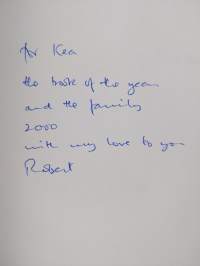 for Kea
the book of the year
and the family
2000
with my love to you
Robert